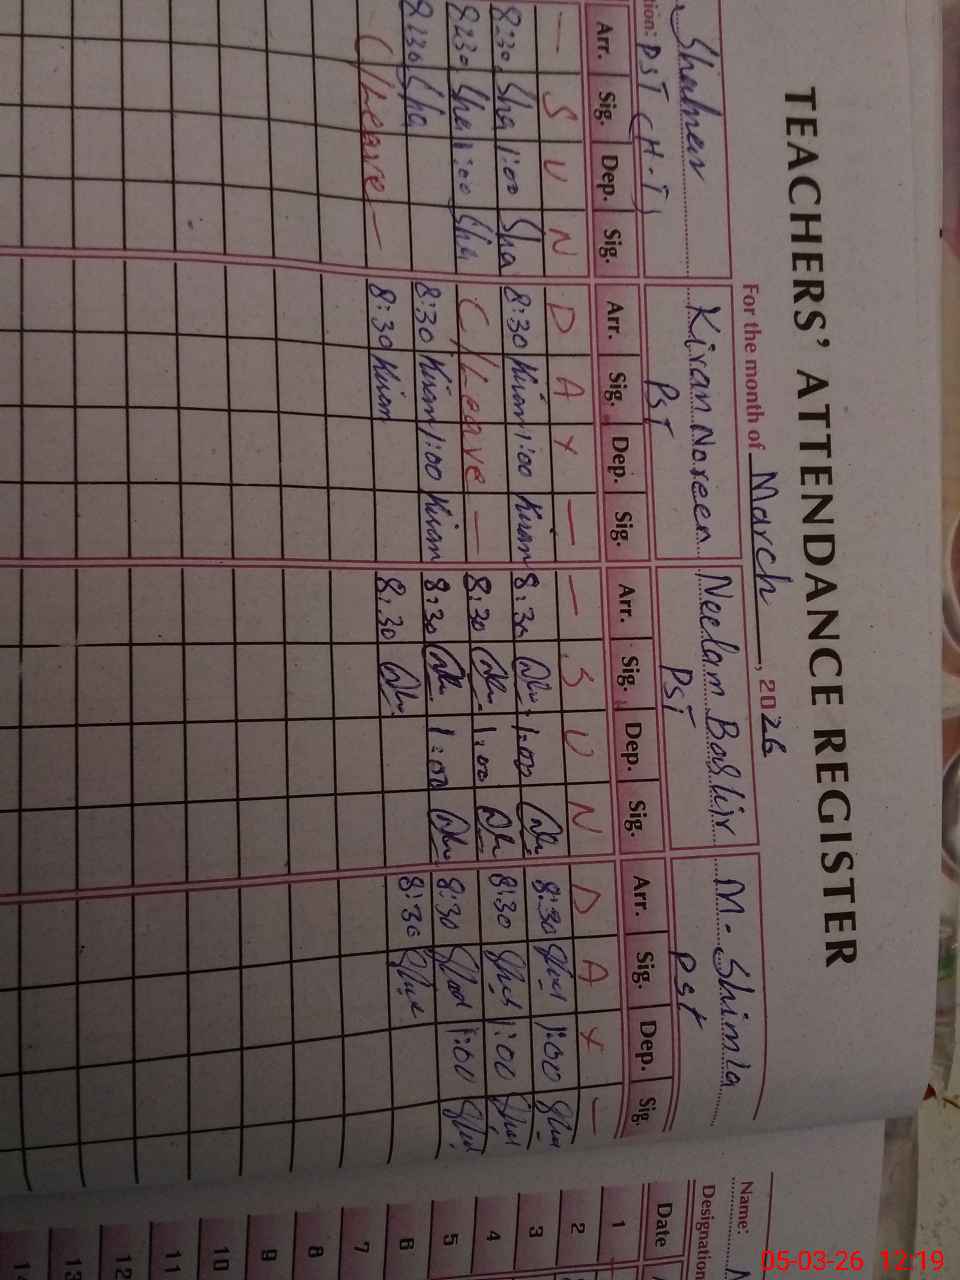 TEACHERS' ATTENDANCE REGISTER
For the month of March, 2026
Shaheen Kiran Noreen Neelam Bashir M. Shimla
tion: PST (H.T) PST PST PST
Arr. Sig. Dep. Sig. Arr. Sig. Dep. Sig. Arr. Sig. Dep. Sig. Arr. Sig. Dep. Sig.
— S U N D A Y — — S U N D A Y —
8:30 Sha 1:00 Sha 8:30 Kiran 1:00 Kiran 8:30 1:00 8:30 1:00
8:30 Sha 1:00 Sha C/Leave — 8:30 1:00 8:30 1:00
8:30 Sha 8:30 Kiran 1:00 Kiran 8:30 1:00 8:30 1:00
C/Leave — 8:30 Kiran 8:30 8:30
Name:
Designation
Date
1
2
3
4
5
6
7
8
9
10
11
12
13
14
05-03-26 12:19